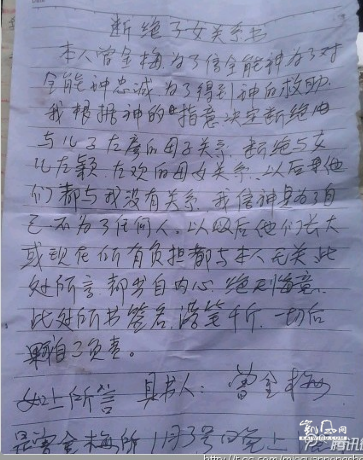 断绝子女关系书
本人曾金梅为了信全能神为了对
全能神忠诚,为了得到神的救助
我根据神的旨意决定断绝由
与儿子左彦的母子关系,断绝与女
儿左颖,左欢的母女关系,以后
们都与我没有关系,我信神是为了自
己不为了任何人,以后他们长大
或现在所有负担都与本人无关,此
处所言,都出自内心,绝无悔意,
此处所书签名,落笔千斤,一切后
果自己负责。
如上所言 具书人:曾金梅
是曾金梅所 1月3号晚上
凯风网
腾讯